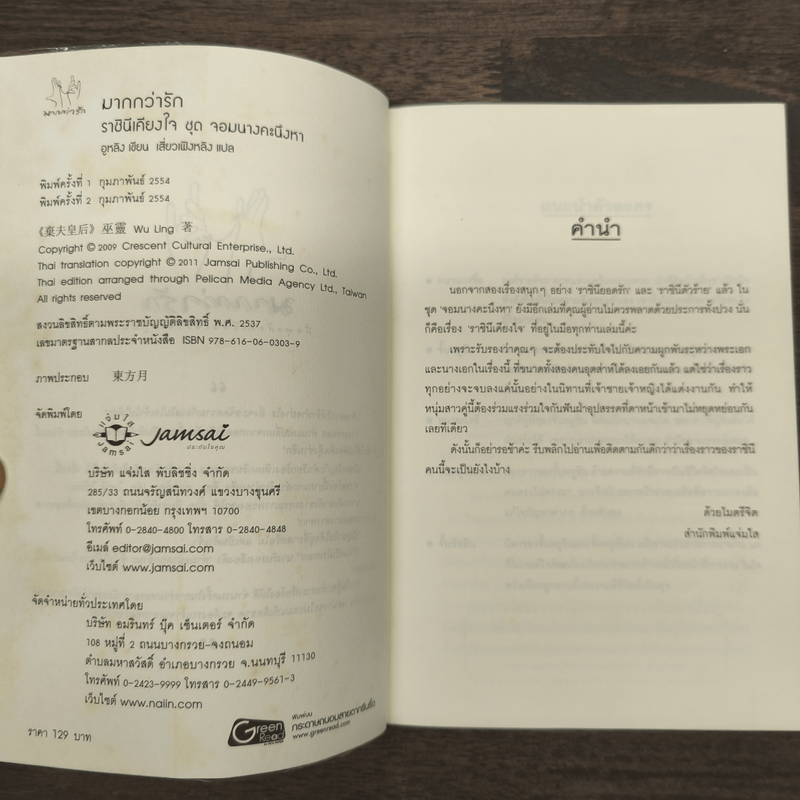 มากกว่ารัก
มากกว่ารัก
ราชินีเคียงใจ ชุด จอมนางคะนึงหา
อูหลิง เขียน เสี่ยวเฟิงหลิง แปล
พิมพ์ครั้งที่ 1 กุมภาพันธ์ 2554
พิมพ์ครั้งที่ 2 กุมภาพันธ์ 2554
《棄夫皇后》巫靈 Wu Ling 著
Copyright © 2009 Crescent Cultural Enterprise., Ltd.
Thai translation copyright © 2011 Jamsai Publishing Co., Ltd.
Thai edition arranged through Pelican Media Agency Ltd., Taiwan
All rights reserved
สงวนลิขสิทธิ์ตามพระราชบัญญัติลิขสิทธิ์ พ.ศ. 2537
เลขมาตรฐานสากลประจำหนังสือ ISBN 978-616-06-0303-9
ภาพประกอบ 東方月
จัดพิมพ์โดย
แจ่มใส
Jamsai
Jamsai
ประทับใจคุณ
บริษัท แจ่มใส พับลิชชิ่ง จำกัด
285/33 ถนนจรัญสนิทวงศ์ แขวงบางขุนศรี
เขตบางกอกน้อย กรุงเทพฯ 10700
โทรศัพท์ 0-2840-4800 โทรสาร 0-2840-4848
อีเมล์ editor@jamsai.com
เว็บไซต์ www.jamsai.com
จัดจำหน่ายทั่วประเทศโดย
บริษัท อมรินทร์ บุ๊ค เซ็นเตอร์ จำกัด
108 หมู่ที่ 2 ถนนบางกรวย-จงถนอม
ตำบลมหาสวัสดิ์ อำเภอบางกรวย จ.นนทบุรี 11130
โทรศัพท์ 0-2423-9999 โทรสาร 0-2449-9561-3
เว็บไซต์ www.naiin.com
ราคา 129 บาท
Green Read
พิมพ์บน
กระดาษถนอมสายตากรีนรี้ด
www.greenread.com
คำนำ
นอกจากสองเรื่องสนุกๆ อย่าง 'ราชินียอดรัก' และ 'ราชินีตัวร้าย' แล้ว ใน
ชุด 'จอมนางคะนึงหา' ยังมีอีกเล่มที่คุณผู้อ่านไม่ควรพลาดด้วยประการทั้งปวง นั่น
ก็คือเรื่อง 'ราชินีเคียงใจ' ที่อยู่ในมือทุกท่านเล่มนี้ค่ะ
เพราะรับรองว่าคุณๆ จะต้องประทับใจไปกับความผูกพันระหว่างพระเอก
และนางเอกในเรื่องนี้ ที่ขนาดทั้งสองคนอุตส่าห์ได้ลงเอยกันแล้ว แต่ใช่ว่าเรื่องราว
ทุกอย่างจะจบลงแค่นั้นอย่างในนิทานที่เจ้าชายเจ้าหญิงได้แต่งงานกัน ทำให้
หนุ่มสาวคู่นี้ต้องร่วมแรงร่วมใจกันฟันฝ่าอุปสรรคที่ดาหน้าเข้ามาไม่หยุดหย่อนกัน
เลยทีเดียว
ดังนั้นก็อย่ารอช้าค่ะ รีบพลิกไปอ่านเพื่อติดตามกันดีกว่าว่าเรื่องราวของราชินี
คนนี้จะเป็นยังไงบ้าง
ด้วยไมตรีจิต
สำนักพิมพ์แจ่มใส